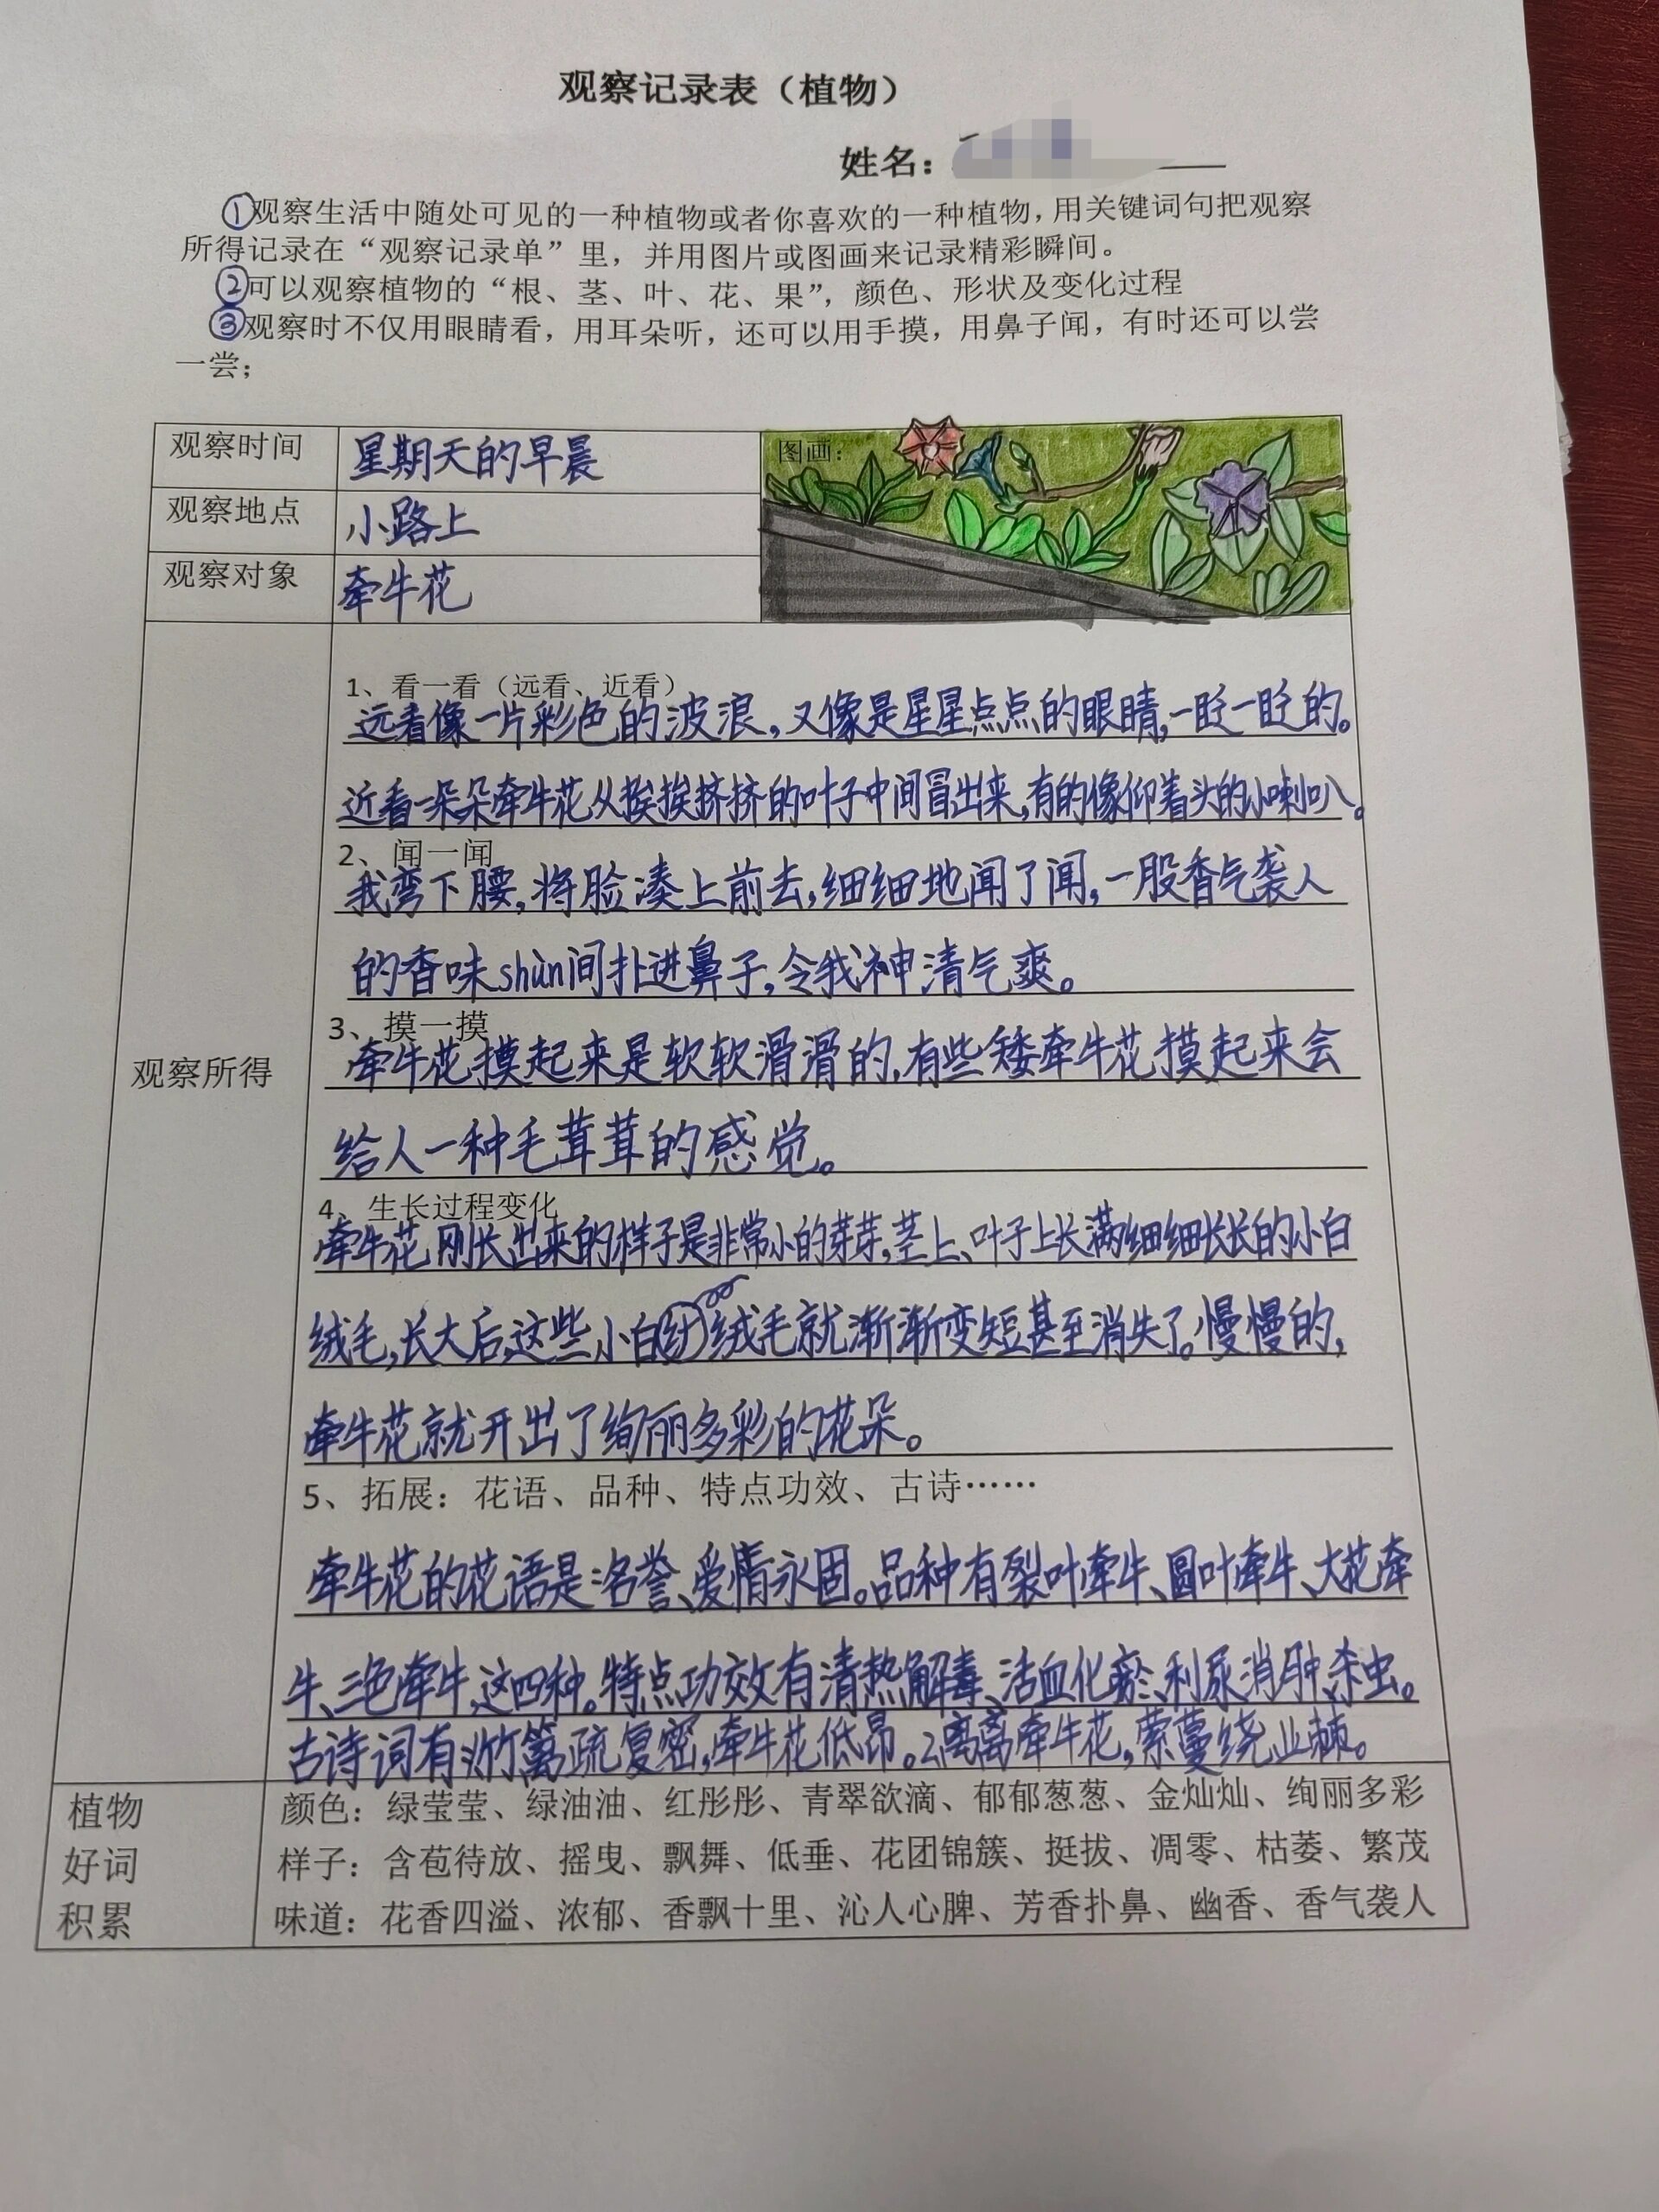 观察记录表（植物）
姓名：
①观察生活中随处可见的一种植物或者你喜欢的一种植物，用关键词句把观察
所得记录在“观察记录单”里，并用图片或图画来记录精彩瞬间。
②可以观察植物的“根、茎、叶、花、果”，颜色、形状及变化过程
③观察时不仅用眼睛看，用耳朵听，还可以用手摸，用鼻子闻，有时还可以尝
一尝；
观察时间 星期天的早晨
图画：
观察地点 小路上
观察对象 牵牛花
观察所得
1、看一看（远看、近看）
远看像一片彩色的波浪，又像是星星点点的眼睛，一眨一眨的。
近看一朵朵牵牛花从挨挨挤挤的叶子中间冒出来，有的像仰着头的小喇叭。
2、闻一闻
我弯下腰，将脸凑上前去，细细地闻了闻，一股香气袭人
的香味shùn间扑进鼻子，令我神清气爽。
3、摸一摸
牵牛花摸起来是软软滑滑的，有些矮牵牛花摸起来会
给人一种毛茸茸的感觉。
4、生长过程变化
牵牛花刚长出来的样子是非常小的芽芽，茎上、叶子上长满细细长长的小白
绒毛，长大后，这些小白绒毛就渐渐变短甚至消失了。慢慢的，
牵牛花就开出了绚丽多彩的花朵。
5、拓展：花语、品种、特点功效、古诗……
牵牛花的花语是：名誉、爱情永固。品种有裂叶牵牛、圆叶牵牛、大花牵
牛、三色牵牛，这四种。特点功效有清热解毒、活血化瘀、利尿消肿、杀虫。
古诗词有：1.竹篱疏复密，牵牛花低昂。2.离离牵牛花，萦蔓绕业棘。
植物
好词
积累
颜色：绿莹莹、绿油油、红彤彤、青翠欲滴、郁郁葱葱、金灿灿、绚丽多彩
样子：含苞待放、摇曳、飘舞、低垂、花团锦簇、挺拔、凋零、枯萎、繁茂
味道：花香四溢、浓郁、香飘十里、沁人心脾、芳香扑鼻、幽香、香气袭人